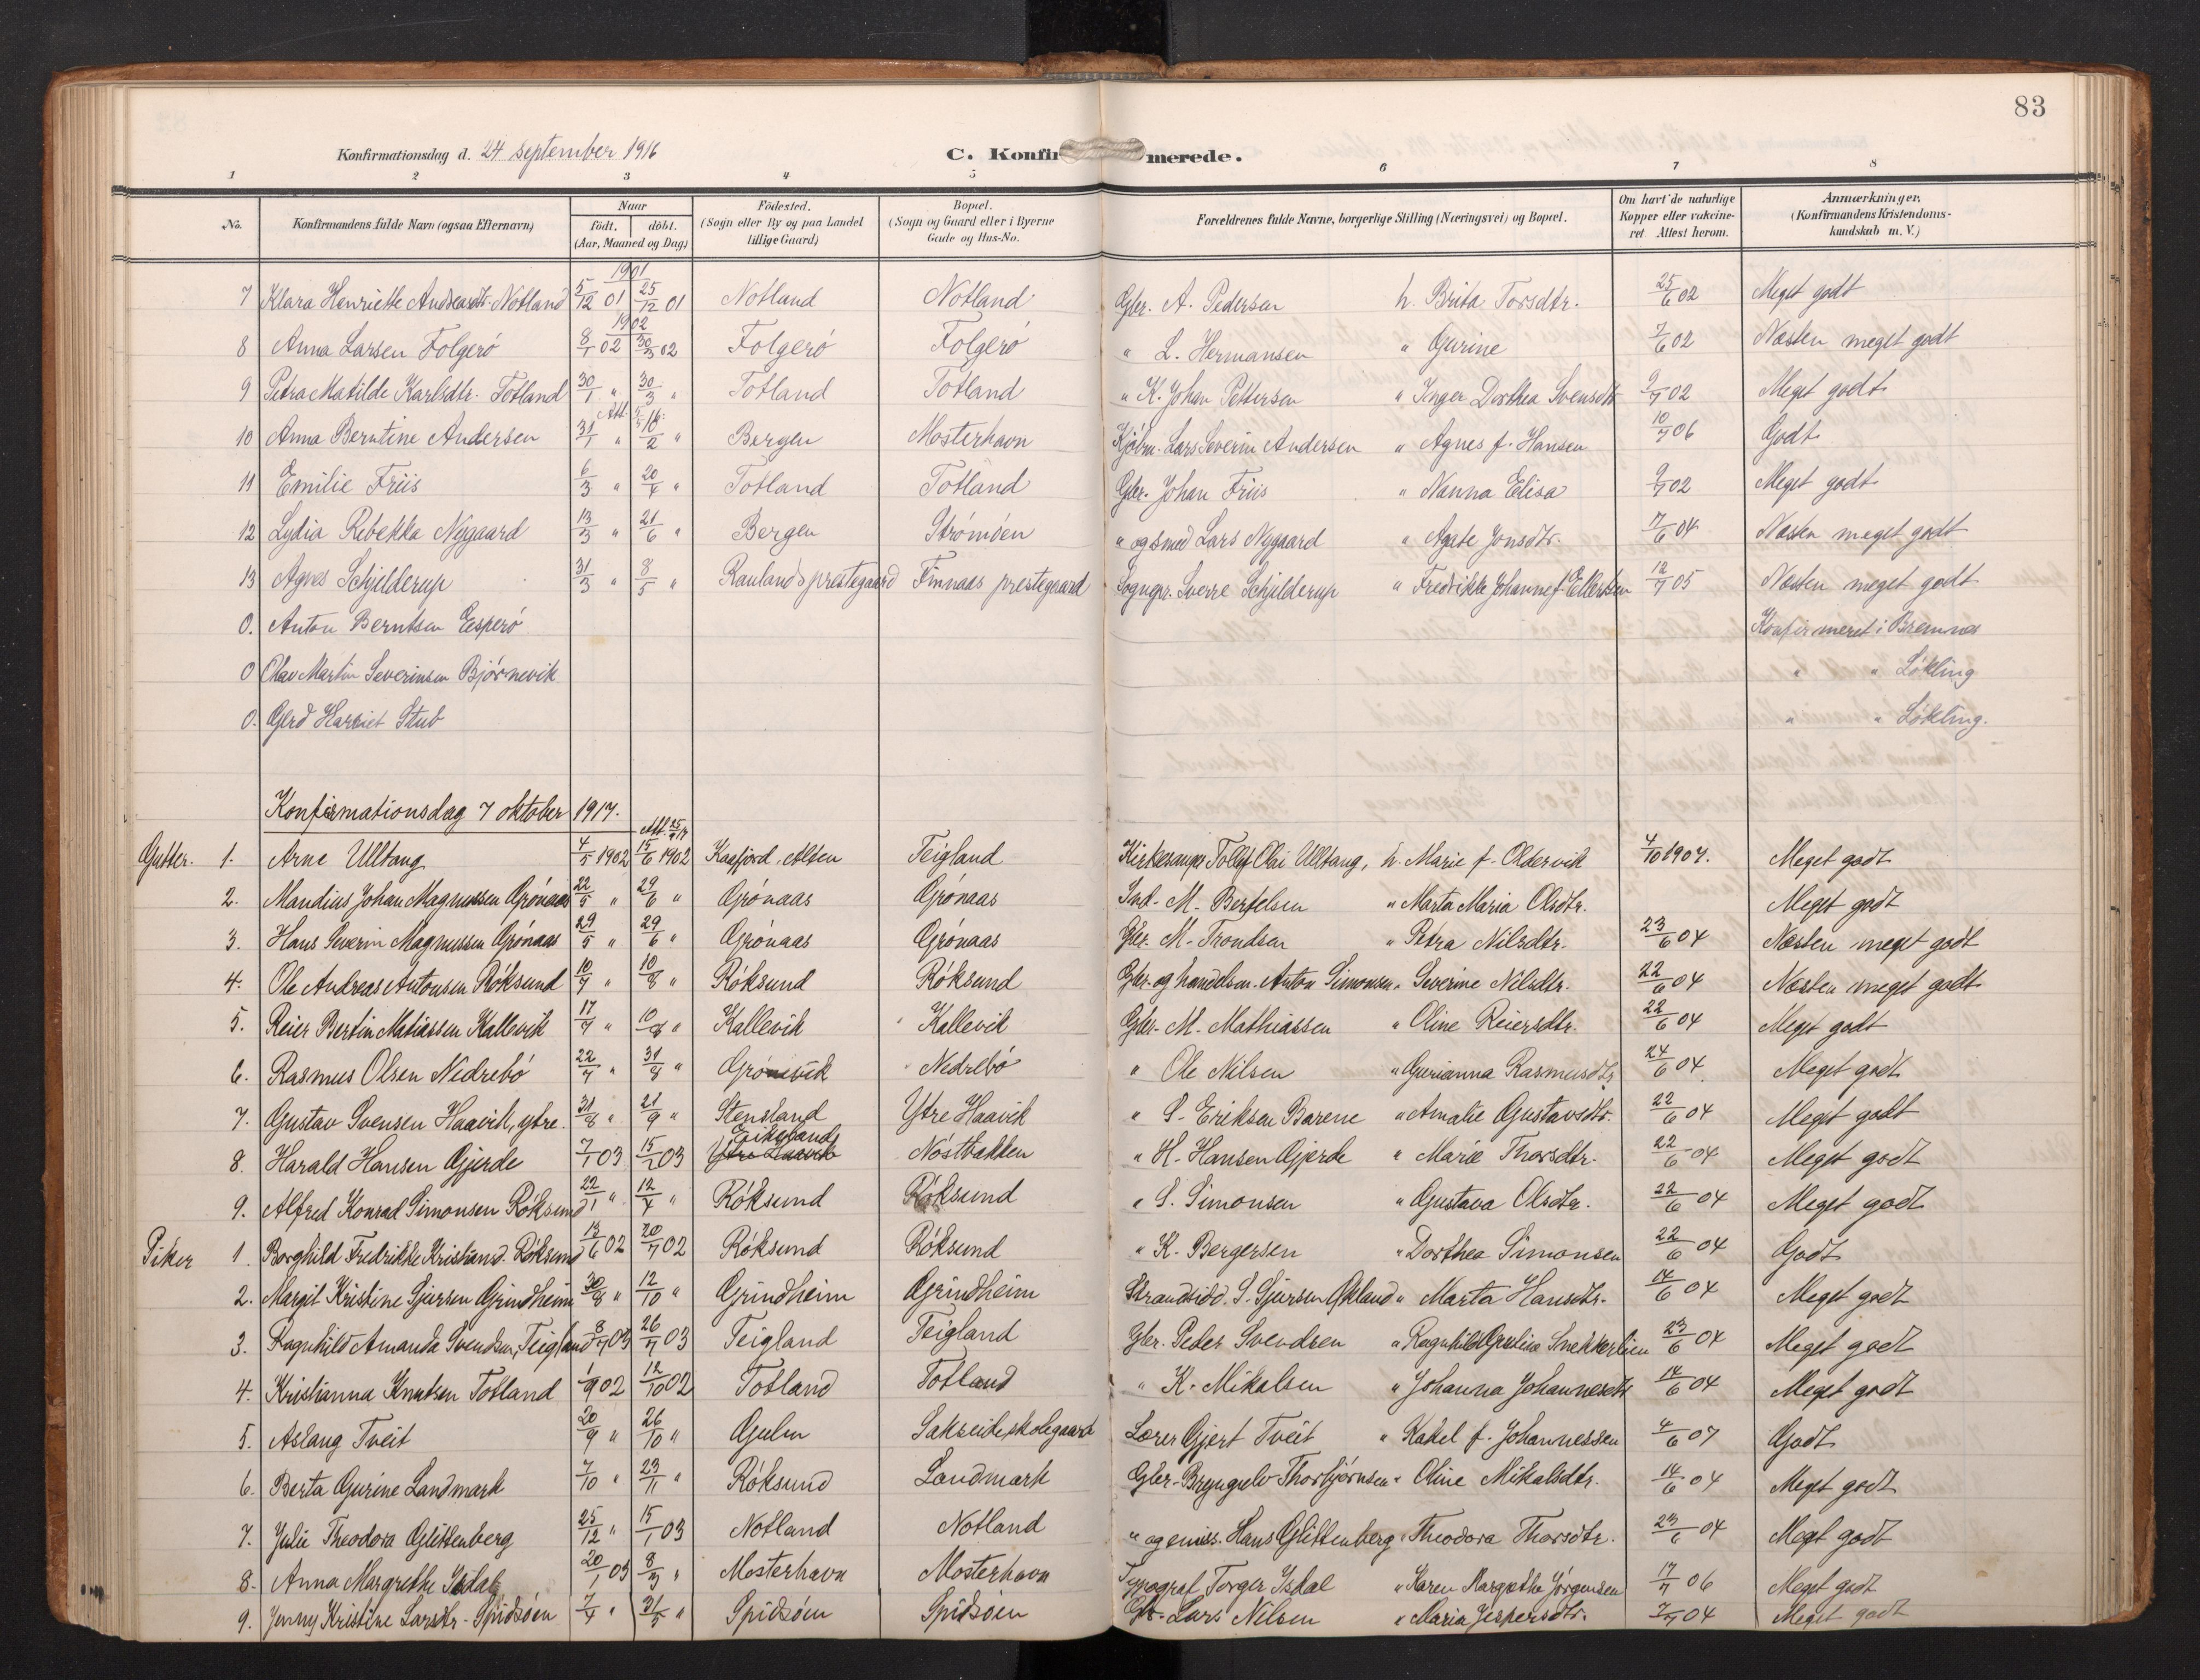 83
Konfirmationsdag d. 24 september 1916
C. Konfir merede.
1 2 3 4 5 6 7 8
No.
Konfirmandens fulde Navn (ogsaa Efternavn)
Naar
födt. döbt.
(Aar, Maaned og Dag)
Födested.
(Sogn eller By og paa Landet
tillige Gaard)
Bopæl.
(Sogn og Gaard eller i Byerne
Gade og Hus-No.
Forældrenes fulde Navne, borgerlige Stilling (Næringsvei) og Bopæl.
Om havt de naturlige
Kopper eller vakcine-
ret. Attest herom.
Anmærkninger,
(Konfirmandens Kristendoms-
kundskab m. V.)
1901
7 Klara Henriette Andreasdtr. Notland 5/12 01 25/12 01 Notland Notland Gbr. A. Pedersen h. Brita Torsdtr. 25/6 02 Meget godt
1902
8 Anna Larsen Folgerö 8/1 02 30/3 02 Folgerö Folgerö " L. Hermansen " Gurine 7/6 02 Næsten meget godt
9 Petra Matilde Karlsdtr. Totland 30/1 " 30/3 " Totland Totland " K. Johan Pettersen " Inger Dorthea Svensdtr 9/7 02 Meget godt
10 Anna Berntine Andersen 31/1 " Att. 16/2 " Bergen Mosterhavn Kjöbm. Lars Severin Andersen " Agnes f. Hansen 10/7 06 Godt
11 Emilie Friis 6/3 " 20/4 " Totland Totland Gbr. Johan Friis " Nanna Elisa 9/7 02 Meget godt
12 Lydia Rebekka Nygaard 13/3 " 21/6 " Bergen Strömöen " og smed Lars Nygaard " Agete Jonsdtr. 17/6 04 Næsten meget godt
13 Agnes Schjelderup 31/3 " 8/5 " Raulands prestegaard Finnaas prestegaard Sognepr. Sverre Schjelderup " Fredrikke Johanne f. Ellertsen 12/7 05 Næsten meget godt
0. Anton Berntsen Eesperö Konfirmeret i Bremnes
0 Olav Martin Severinsen Björnevik " " Løkling
0. Gerd Harriet Stub " " Løkling.
Konfirmationsdag 7 oktober 1917.
Att. 25/9 17
Gutter. 1. Arne Ulltang 4/5 1902 15/6 1902 Kaafjord, Alten Teigland Kirkesanger Tollef Olai Ulltang, h. Marie f. Oldervik 4/10 1907. Meget godt
2. Mandius Johan Magnussen Grönaas 22/5 " 29/6 " Grönaas Grönaas Ind. M. Bertelsen " Marta Maria Olsdtr. Meget godt
3. Hans Severin Magnussen Grönaas 29/5 " 29/6 " Grönaas Grönaas Gbr. M. Trondsen " Petra Nilsdtr. 23/6 04 Næsten meget godt
4. Ole Andreas Antonsen Röksund 10/7 " 10/8 " Röksund Röksund Gbr. og handelsm. Anton Simonsen " Severine Nilsdtr. 22/6 04 Næsten meget godt
5. Reier Bertin Matiassen Kallevik 17/7 " 10/8 " Kallevik " Kallevik Gbr. M. Mathiassen " Oline Reiersdtr. 22/6 04 Meget godt
6. Rasmus Olsen Nedrebö 22/7 " 31/8 " Grönevik " Nedrebö " Ole Nilsen " Gurianna Rasmusdtr 24/6 04 Meget godt
7. Gustav Svensen Haavik, ytre. 31/8 " 21/9 " Stensland Ytre Haavik " S. Eriksen Barene " Amalie Gustavsdtr. 22/6 04 Meget godt
Eikeland
8. Harald Hansen Gjerde 7/1 03 15/2 03 Ytre Haavik Nöstbakken " H. Hansen Gjerde " Marie Thorsdtr. 22/6 04 Meget godt
9. Alfred Konrad Simonsen Röksund 22/1 " 12/4 " Röksund Röksund " S. Simonsen " Gustava Olsdtr. 22/6 04 Meget godt
Piker 1. Borghild Fredrikke Kristiansd. Röksund 13/6 02 20/7 02 Röksund Röksund " K. Bergersen " Dorthea Simonsen 22/6 04 Godt
2. Margit Kristine Sjursen Grindheim 30/8 " 12/10 " Grindheim Grindheim Strandsidd. S. Sjursen Økland " Marta Hansdtr. 14/6 04 Meget godt
3. Ragnhild Amanda Svendsen, Teigland 8/7 03 26/7 03 Teigland Teigland Gbr. Peder Svendsen " Ragnhild Gurine Snekkerlien 23/6 04 Meget godt
4. Kristianna Knutsen Totland 1/9 02 12/10 02 Totland Totland " K. Mikalsen " Johanna Johannesdtr 14/6 04 Meget godt
5. Aslaug Tveit 20/9 " 26/10 " Gulen Sakseide skolegaard Lærer Gjert Tveit " Rakel f. Johannessen 4/6 07 Godt
6. Berta Gurine Landmark 7/10 " 23/11 " Röksund Landmark Gbr. Bryngelv Thorbjørnsen " Oline Mikalsdtr. 14/6 04 Meget godt
7. Julie Theodora Glittenberg 25/12 " 15/1 03 Notland Notland " og emiss. Hans Glittenberg " Theodora Thorsdtr. 23/6 04 Meget godt
8. Anna Margrethe Isdal 20/1 03 8/3 " Mosterhavn Mosterhavn Typograf Torger Isdal " Karen Margrethe Jørgensen 17/7 06 Meget godt
9. Jenny Kristine Larsdtr. Spidsöen 7/4 " 31/5 " Spidsöen Spidsöen Gbr. Lars Nilsen " Maria Jespersdtr. 7/7 04 Meget godt